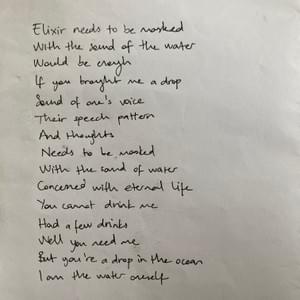 Elixir needs to be masked
With the sound of the water
Would be enough
If you brought me a drop
Sound of one's voice
Their speech pattern
And thoughts
Needs to be masked
With the sound of water
Concerned with eternal life
You cannot drink me
Had a few drinks
Well you need me
But you're a drop in the ocean
I am the water oneself